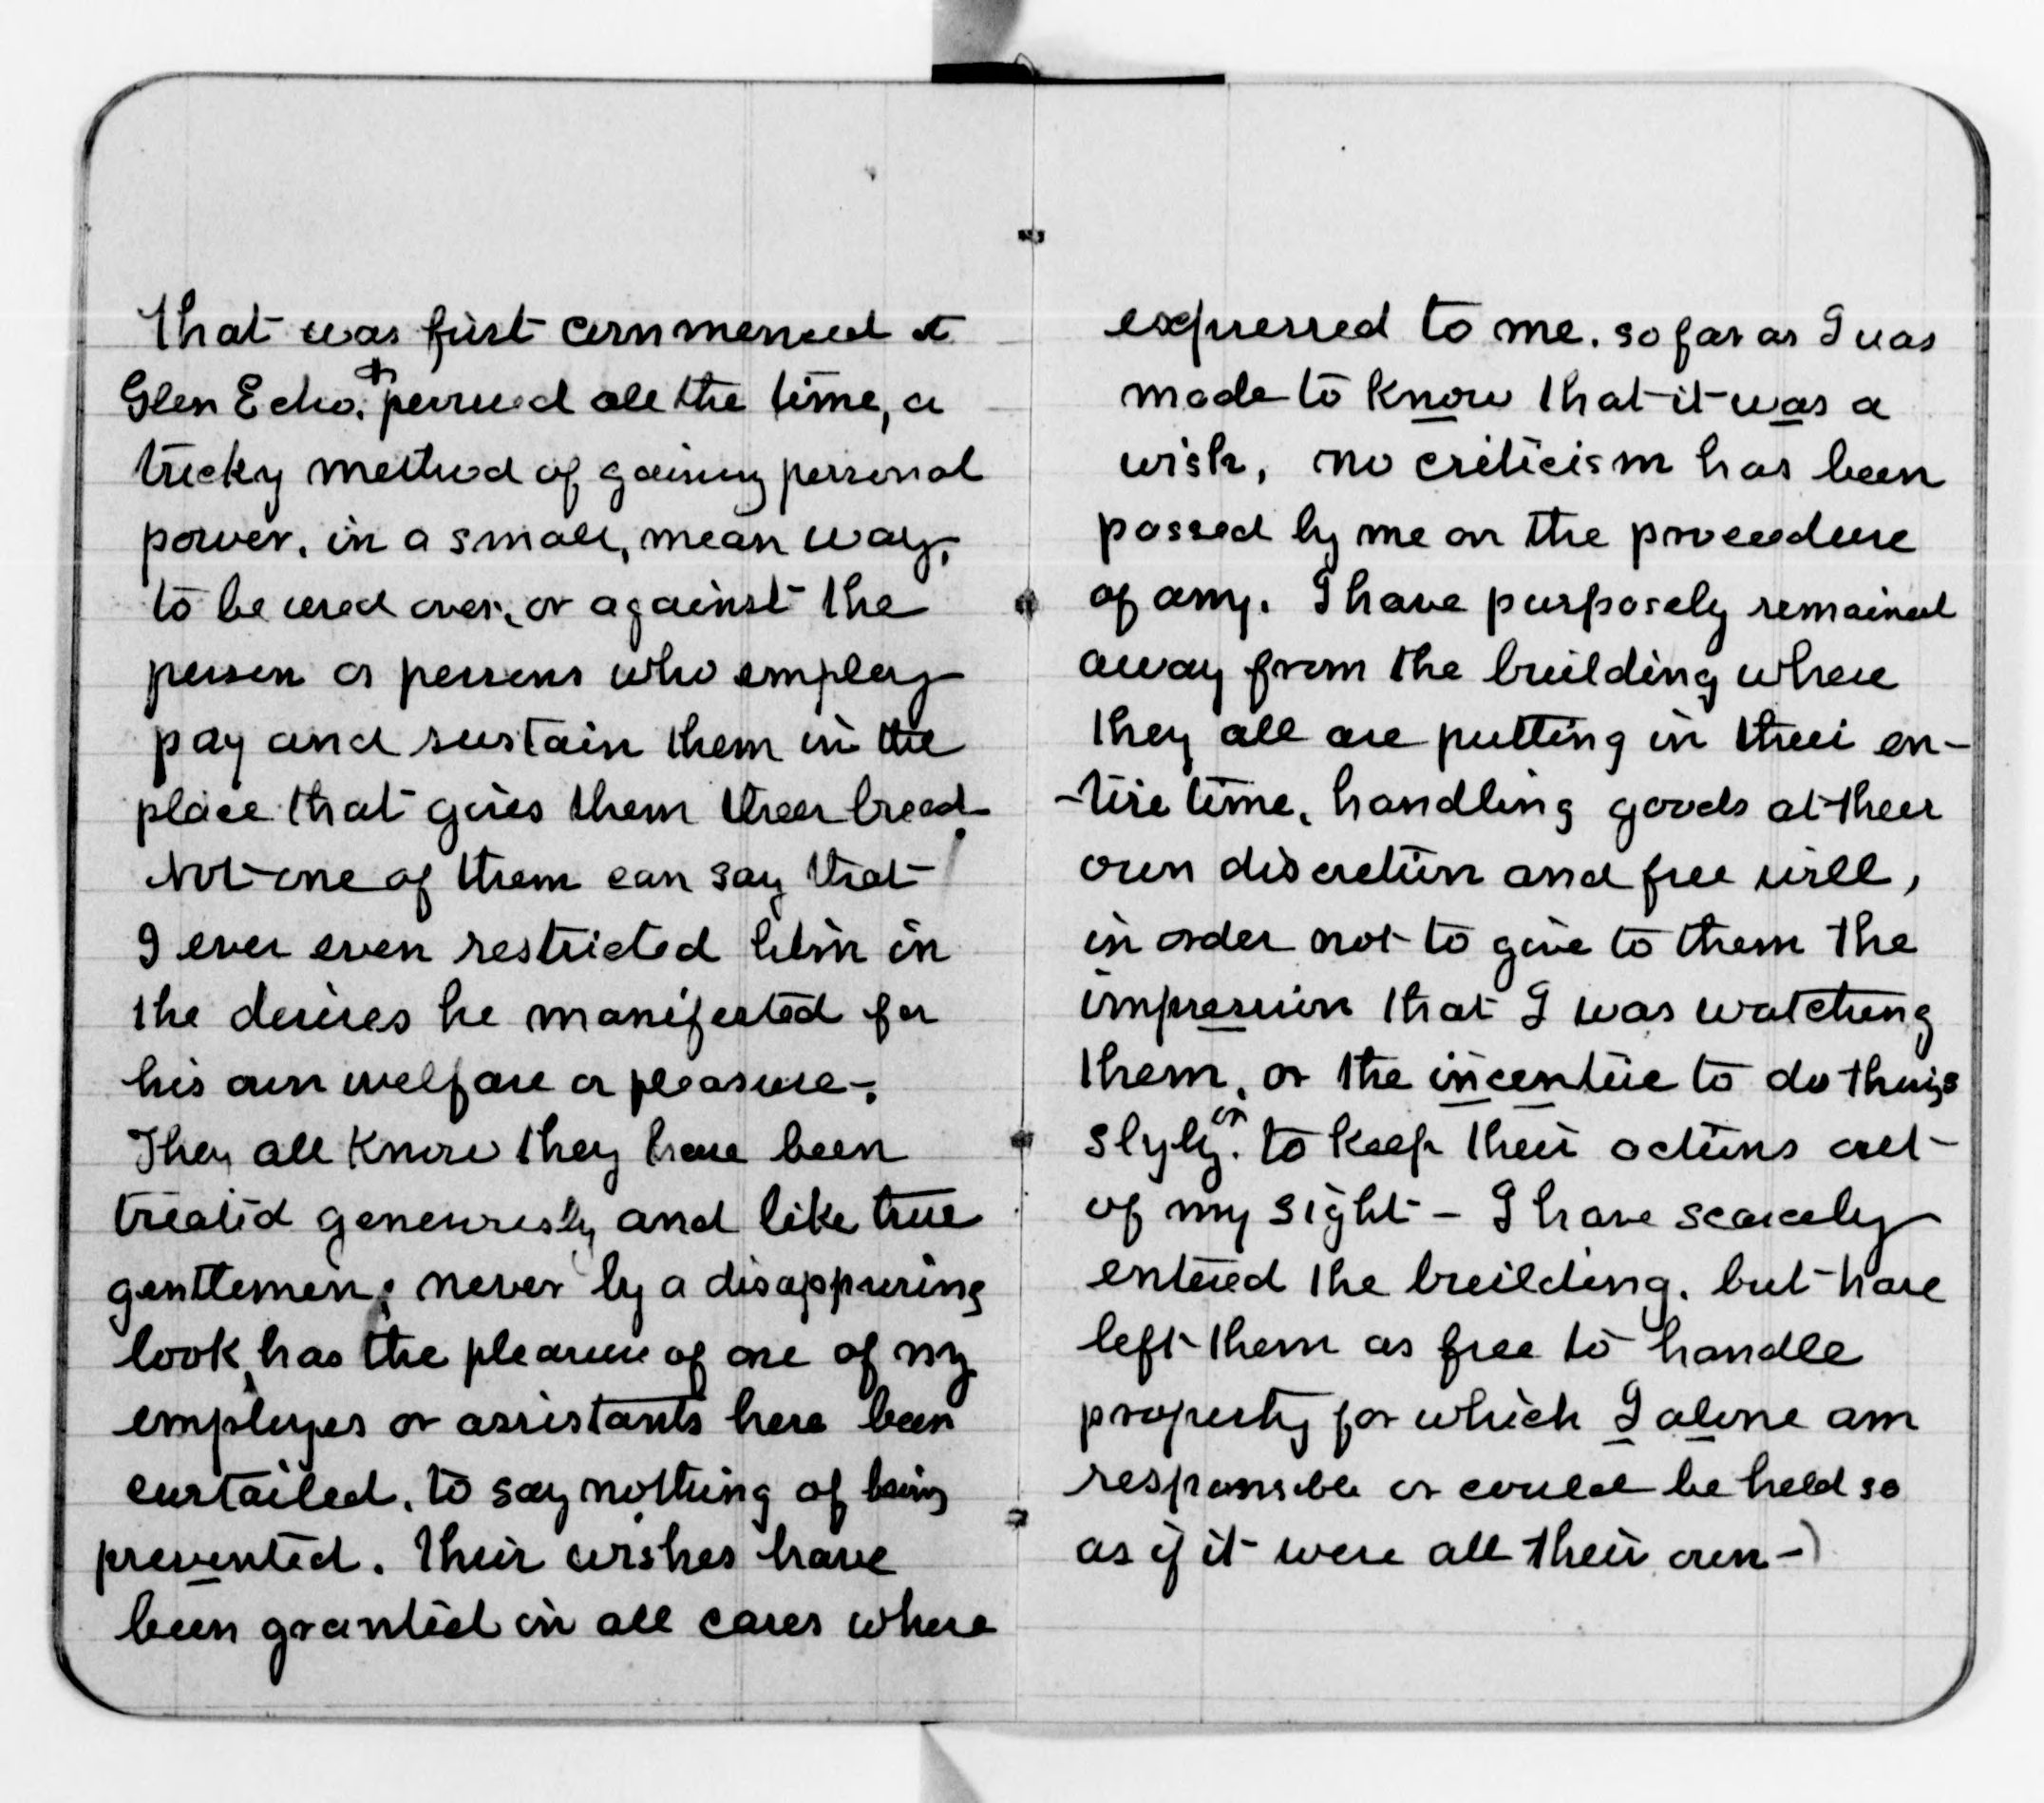 that was first commenced at
Glen Echo. & perused all the time, a
tricky method of gaining personal
power, in a small, mean way,
to be used over, or against the
person or persons who employ
pay and sustain them in the
place that gives them their bread.
Not one of them can say that
I ever even restricted him in
the desires he manifested for
his own welfare or pleasure.
They all know they have been
treated generously and like true
gentlemen; never by a disapproving
look, has the pleasure of one of my
employes or assistants here been
curtailed, to say nothing of being
prevented. Their wishes have
been granted in all cases where
expressed to me. so far as I was
made to know that it was a
wish, no criticism has been
passed by me on the procedure
of any. I have purposely remained
away from the building where
they all are putting in their en-
-tire time, handling goods at their
own discretion and free will,
in order not to give to them the
impression that I was watching
them, or the incentive to do things
slyly, or to keep their actions out
of my sight - I have scarcely
entered the building, but have
left them as free to handle
property for which I alone am
responsible or could be held so
as if it were all their own -)